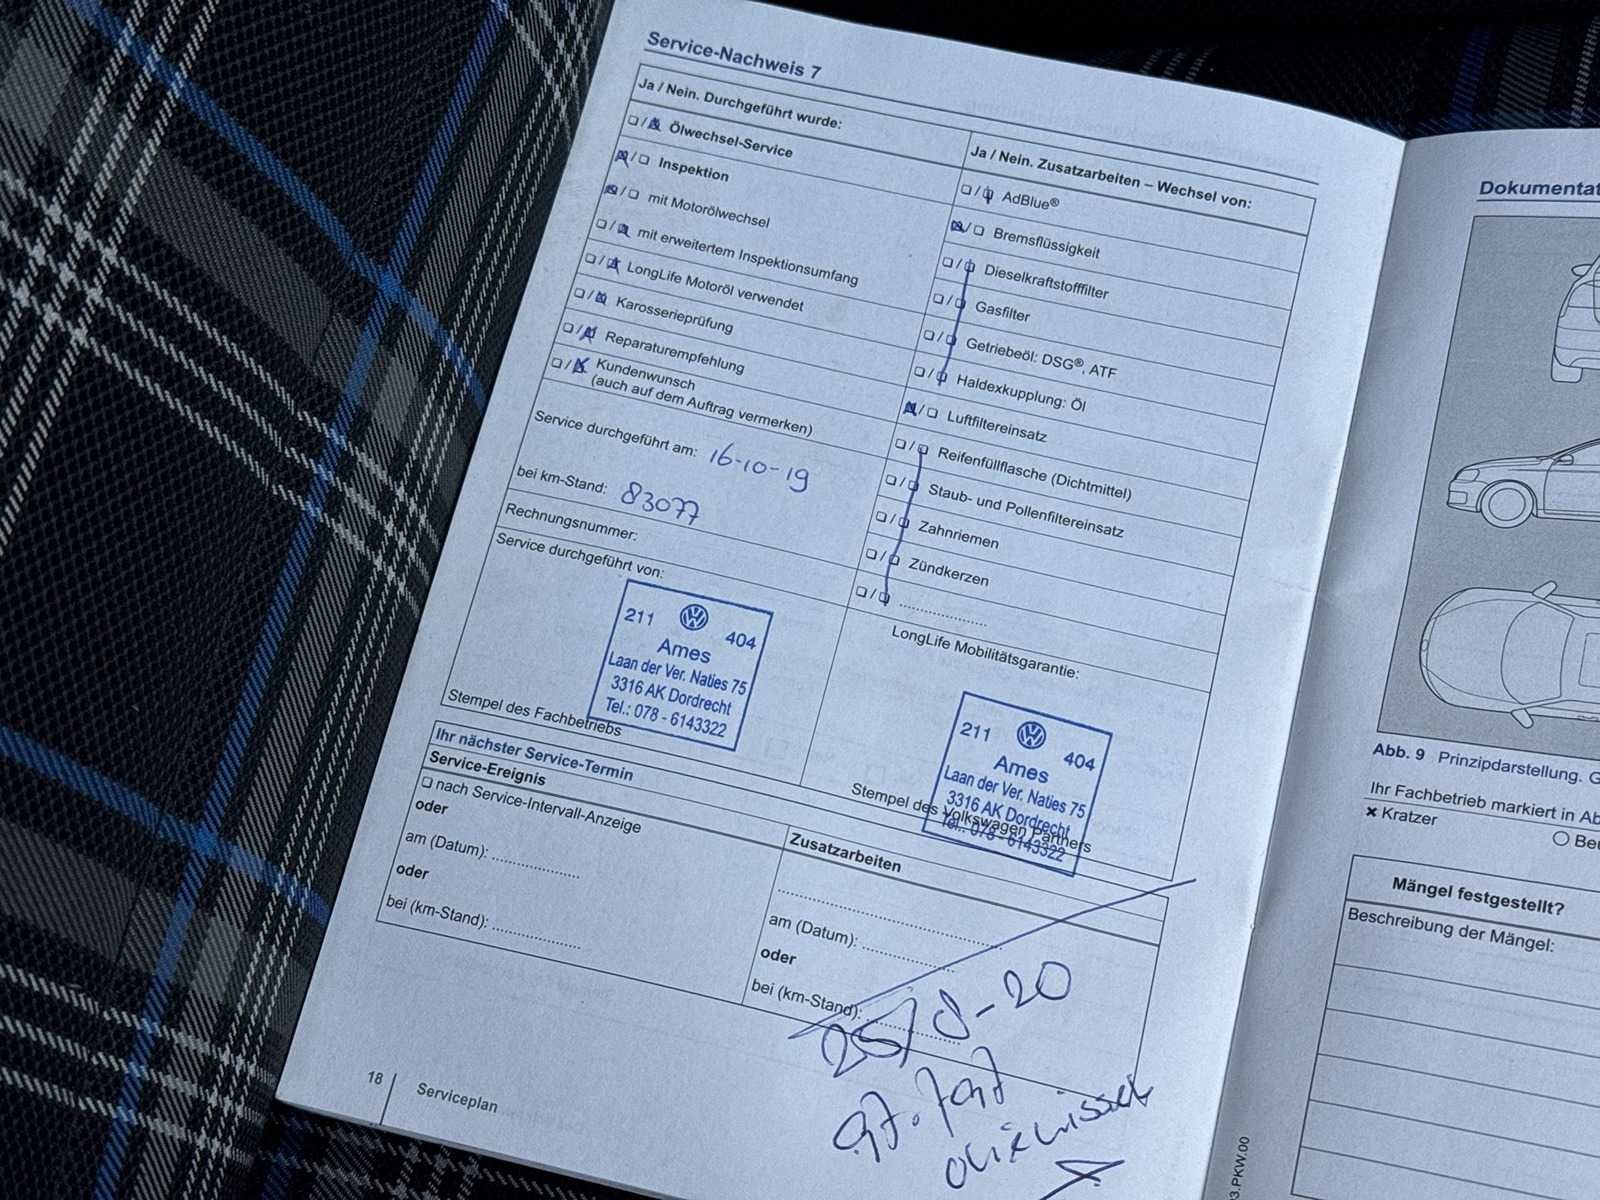 Service-Nachweis 7
Ja / Nein. Durchgeführt wurde:
Ölwechsel-Service
Inspektion
mit Motorölwechsel
mit erweitertem Inspektionsumfang
LongLife Motoröl verwendet
Karosserieprüfung
Reparaturempfehlung
Kundenwunsch
(auch auf dem Auftrag vermerken)
Service durchgeführt am: 16-10-19
bei km-Stand: 83077
Rechnungsnummer:
Service durchgeführt von:
211 404
Ames
Laan der Ver. Naties 75
3316 AK Dordrecht
Tel.: 078 - 6143322
Stempel des Fachbetriebs
Ja / Nein. Zusatzarbeiten – Wechsel von:
AdBlue®
Bremsflüssigkeit
Dieselkraftstofffilter
Gasfilter
Getriebeöl: DSG®, ATF
Haldexkupplung: Öl
Luftfiltereinsatz
Reifenfüllflasche (Dichtmittel)
Staub- und Pollenfiltereinsatz
Zahnriemen
Zündkerzen
LongLife Mobilitätsgarantie:
211 404
Ames
Laan der Ver. Naties 75
3316 AK Dordrecht
Tel.: 078 - 6143322
Stempel des Volkswagen Partners
Ihr nächster Service-Termin
Service-Ereignis
nach Service-Intervall-Anzeige
oder
am (Datum):
oder
bei (km-Stand):
Zusatzarbeiten
am (Datum):
oder
bei (km-Stand):
25/8-20
18
Serviceplan
Abb. 9 Prinzipdarstellung.
Ihr Fachbetrieb markiert in
Kratzer
Mängel festgestellt?
Beschreibung der Mängel: